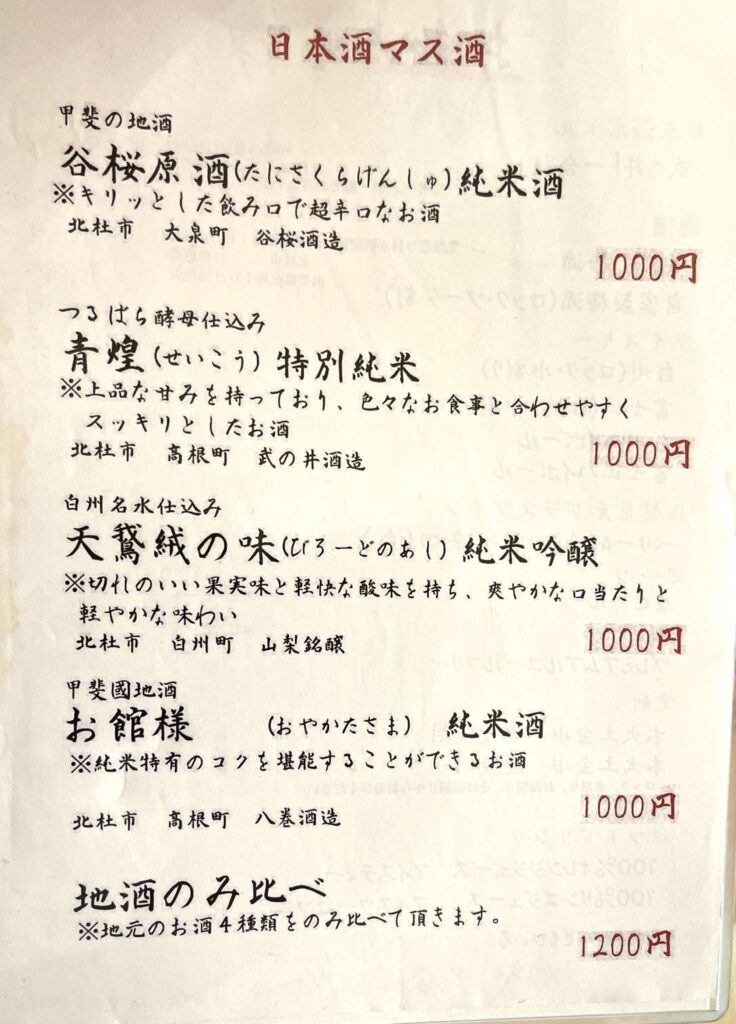 日本酒マス酒
甲斐の地酒
谷桜原酒(たにさくらげんしゅ)純米酒
※キリッとした飲み口で超辛口なお酒
北杜市　大泉町　谷桜酒造
1000円
つるばら酵母仕込み
青煌(せいこう)特別純米
※上品な甘みを持っており、色々なお食事と合わせやすく
スッキリとしたお酒
北杜市　高根町　武の井酒造
1000円
白州名水仕込み
天鵞絨の味(びろーどのあじ)純米吟醸
※切れのいい果実味と軽快な酸味を持ち、爽やかな口当たりと
軽やかな味わい
北杜市　白州町　山梨銘醸
1000円
甲斐國地酒
お館様　(おやかたさま)　純米酒
※純米特有のコクを堪能することができるお酒
北杜市　高根町　八巻酒造
1000円
地酒のみ比べ
※地元のお酒4種類をのみ比べて頂きます。
1200円